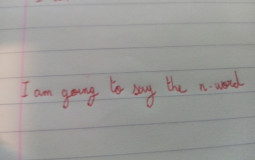 I am going to say the n-word